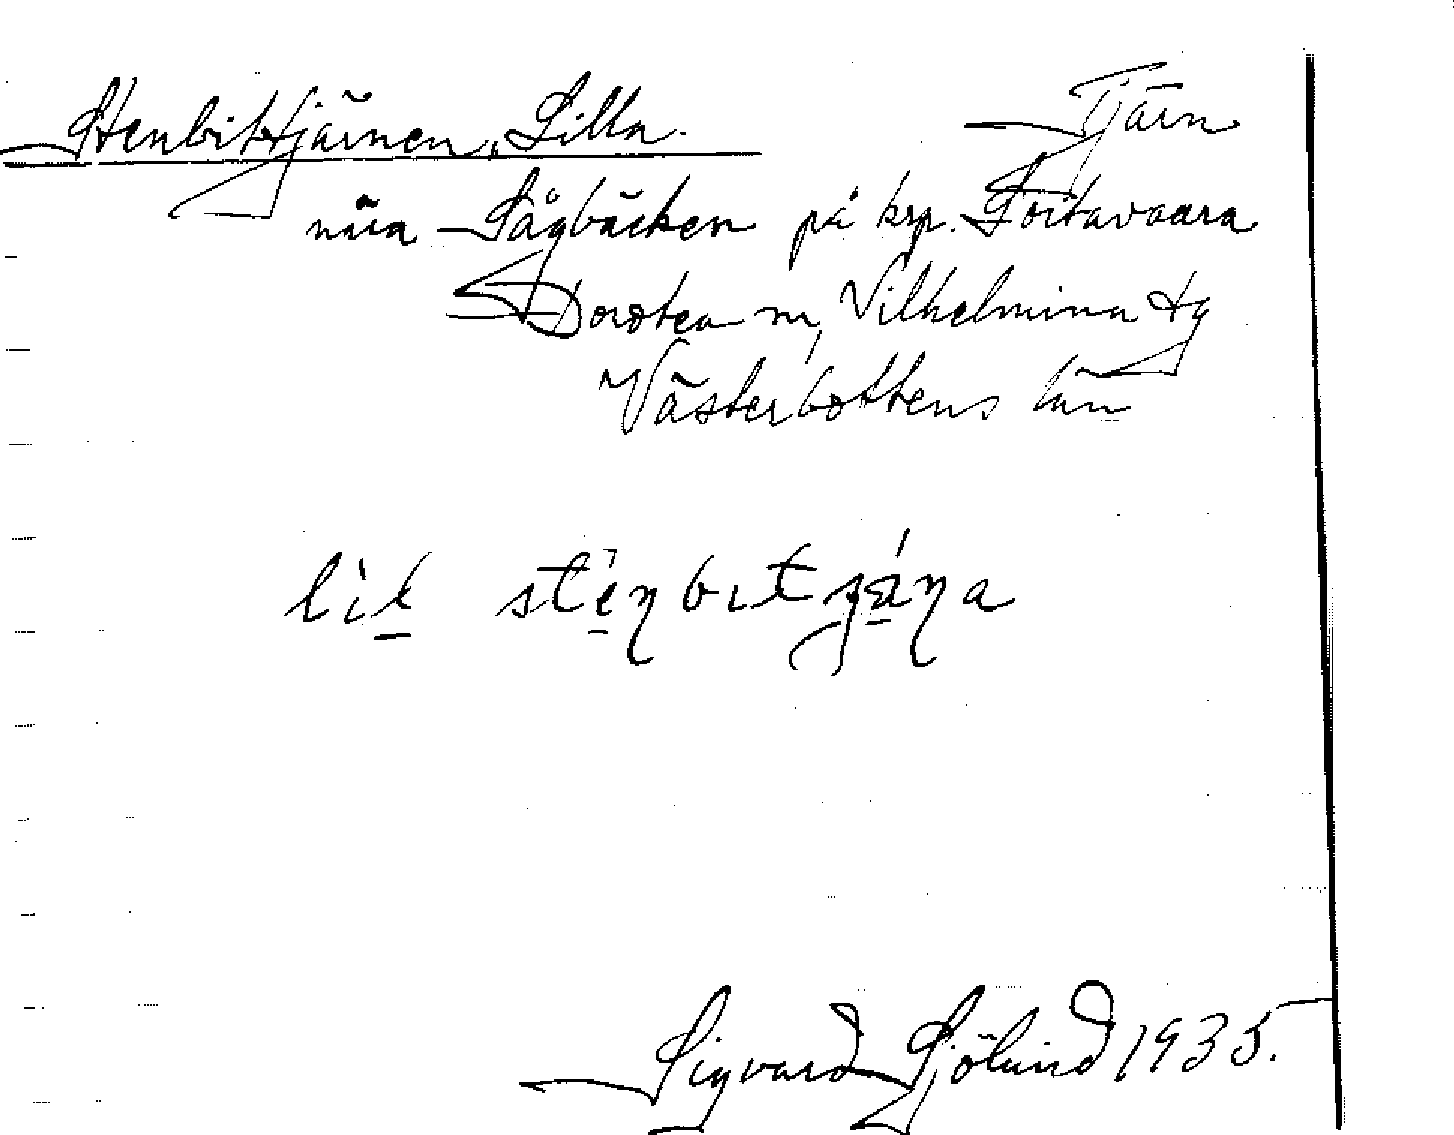 Stenbittjärnen, Lilla. Tjärn
nära Sågbäcken på krp. Soitavaara
Dorotea m, Vilhelmina tg
Västerbottens län
Sigvard Sjölund 1935.